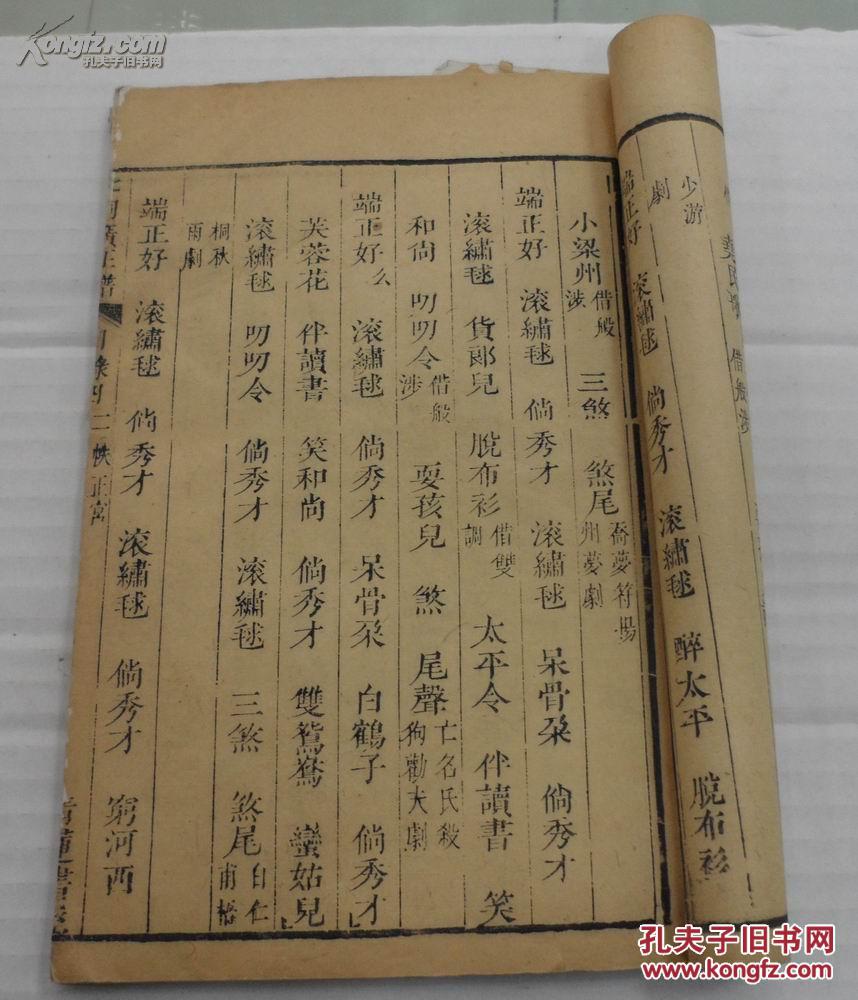 少游
劇
端正好 滚繡毬 倘秀才 滚繡毬 醉太平 脫布衫
小梁州借般涉 三煞 煞尾喬夢符揚州夢劇
端正好 滚繡毬 倘秀才 滚繡毬 呆骨朶 倘秀才
滚繡毬 貨郞兒 脫布衫借雙調 太平令 伴讀書 笑
和尙 叨叨令借般涉 耍孩兒 煞 尾聲亡名氏殺狗勸夫劇
端正好么 滚繡毬 倘秀才 呆骨朶 白鶴子 倘秀才
芙蓉花 伴讀書 笑和尙 倘秀才 雙鴛鴦 蠻姑兒
滚繡毬 叨叨令 倘秀才 滚繡毬 三煞 煞尾白仁甫梧
桐秋雨劇
端正好 滚繡毬 倘秀才 滚繡毬 倘秀才 窮河西
Kongfz.com
孔夫子旧书网
孔夫子旧书网
www.kongfz.com